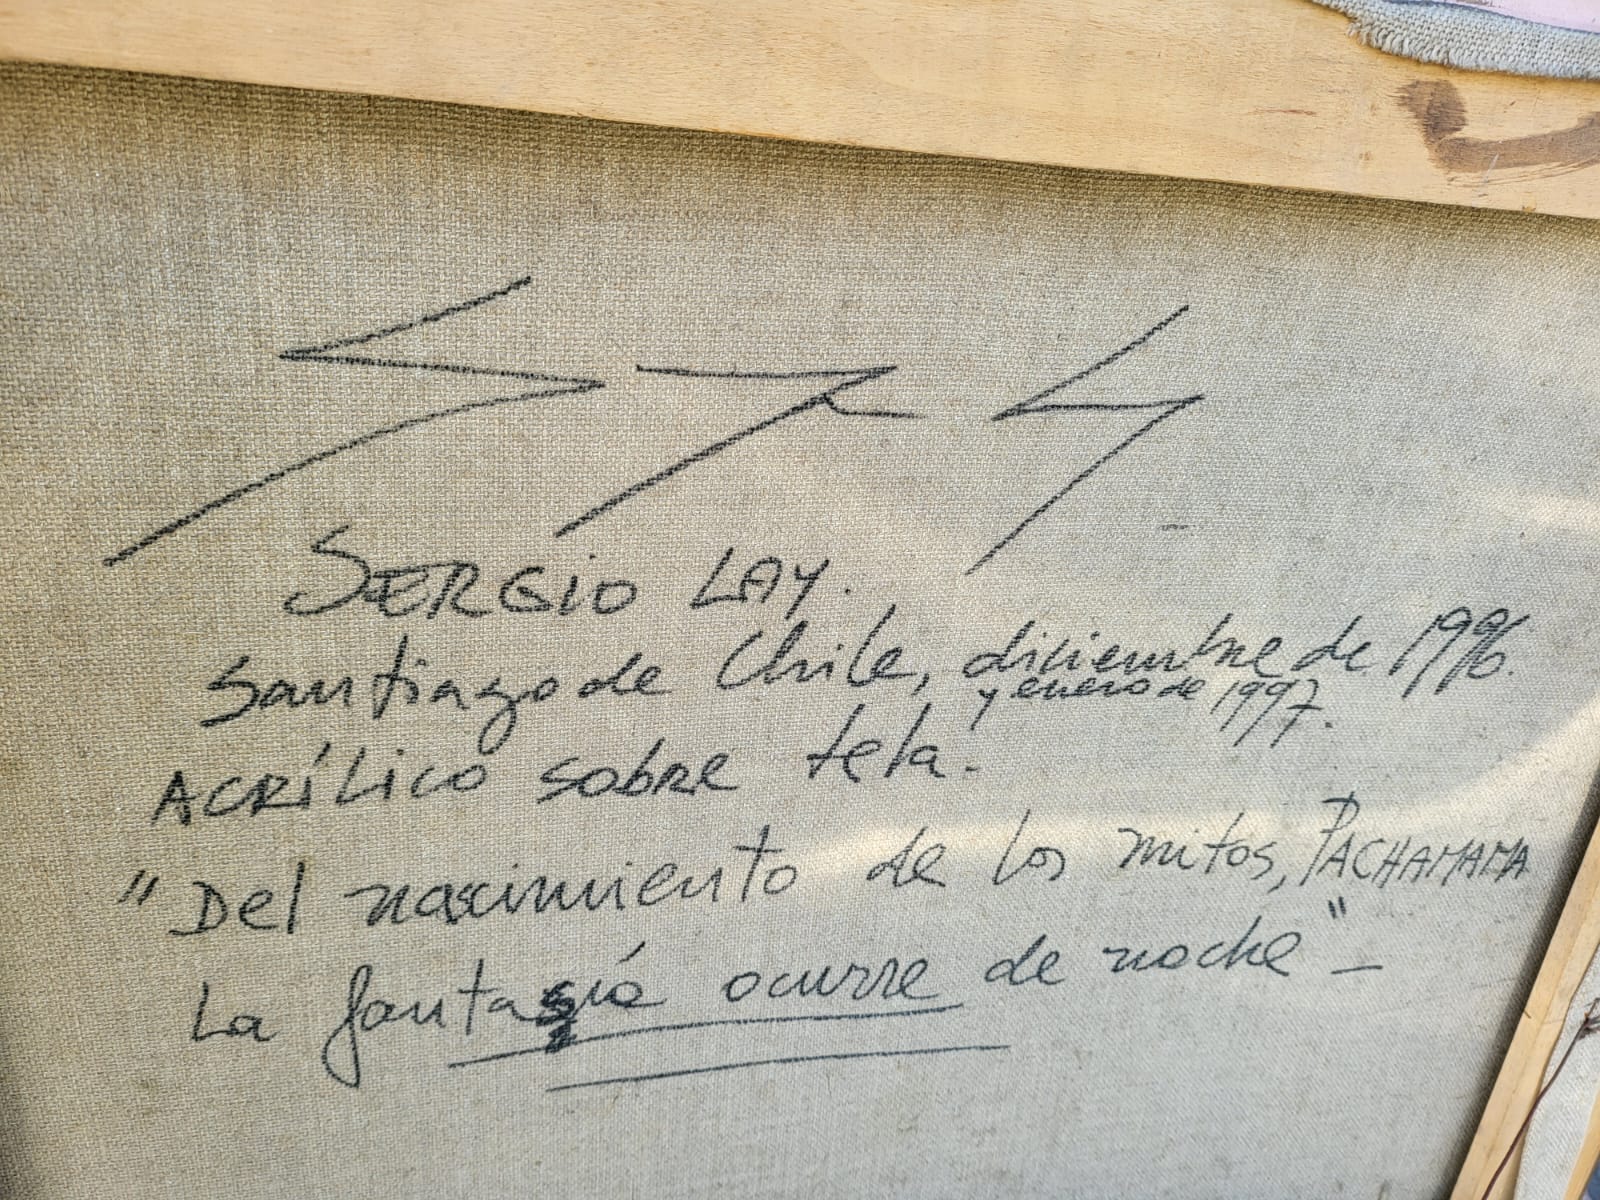 SERGIO LAY.
Santiago de Chile, diciembre de 1996.
y enero de 1997.
ACRÍLICO sobre tela.
"Del nacimiento de los mitos, PACHAMAMA
La fantasía ocurre de noche" –